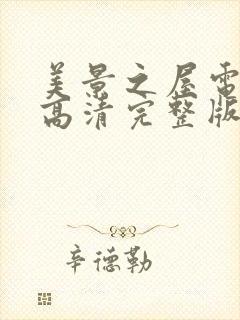 美景之屋电
高清完整版
辛德勒